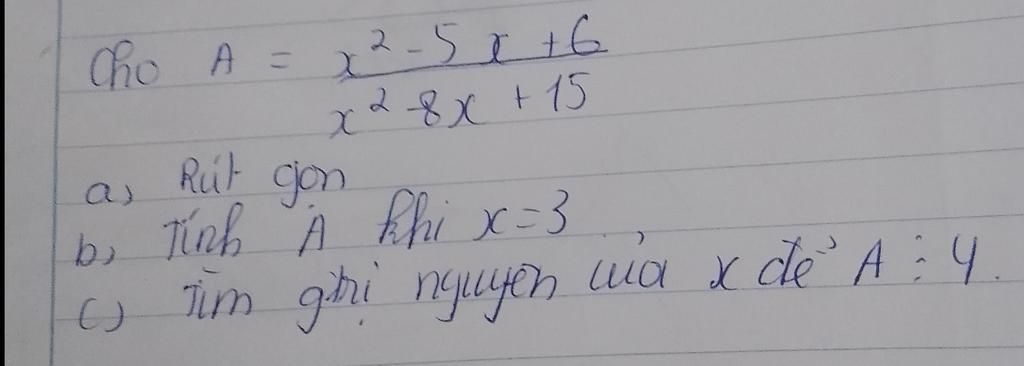 Cho A = x² - 5x + 6 / x² - 8x + 15
a) Rút gọn
b) Tính A khi x = 3
c) Tìm gtri nguyên của x để A ⋮ 4.